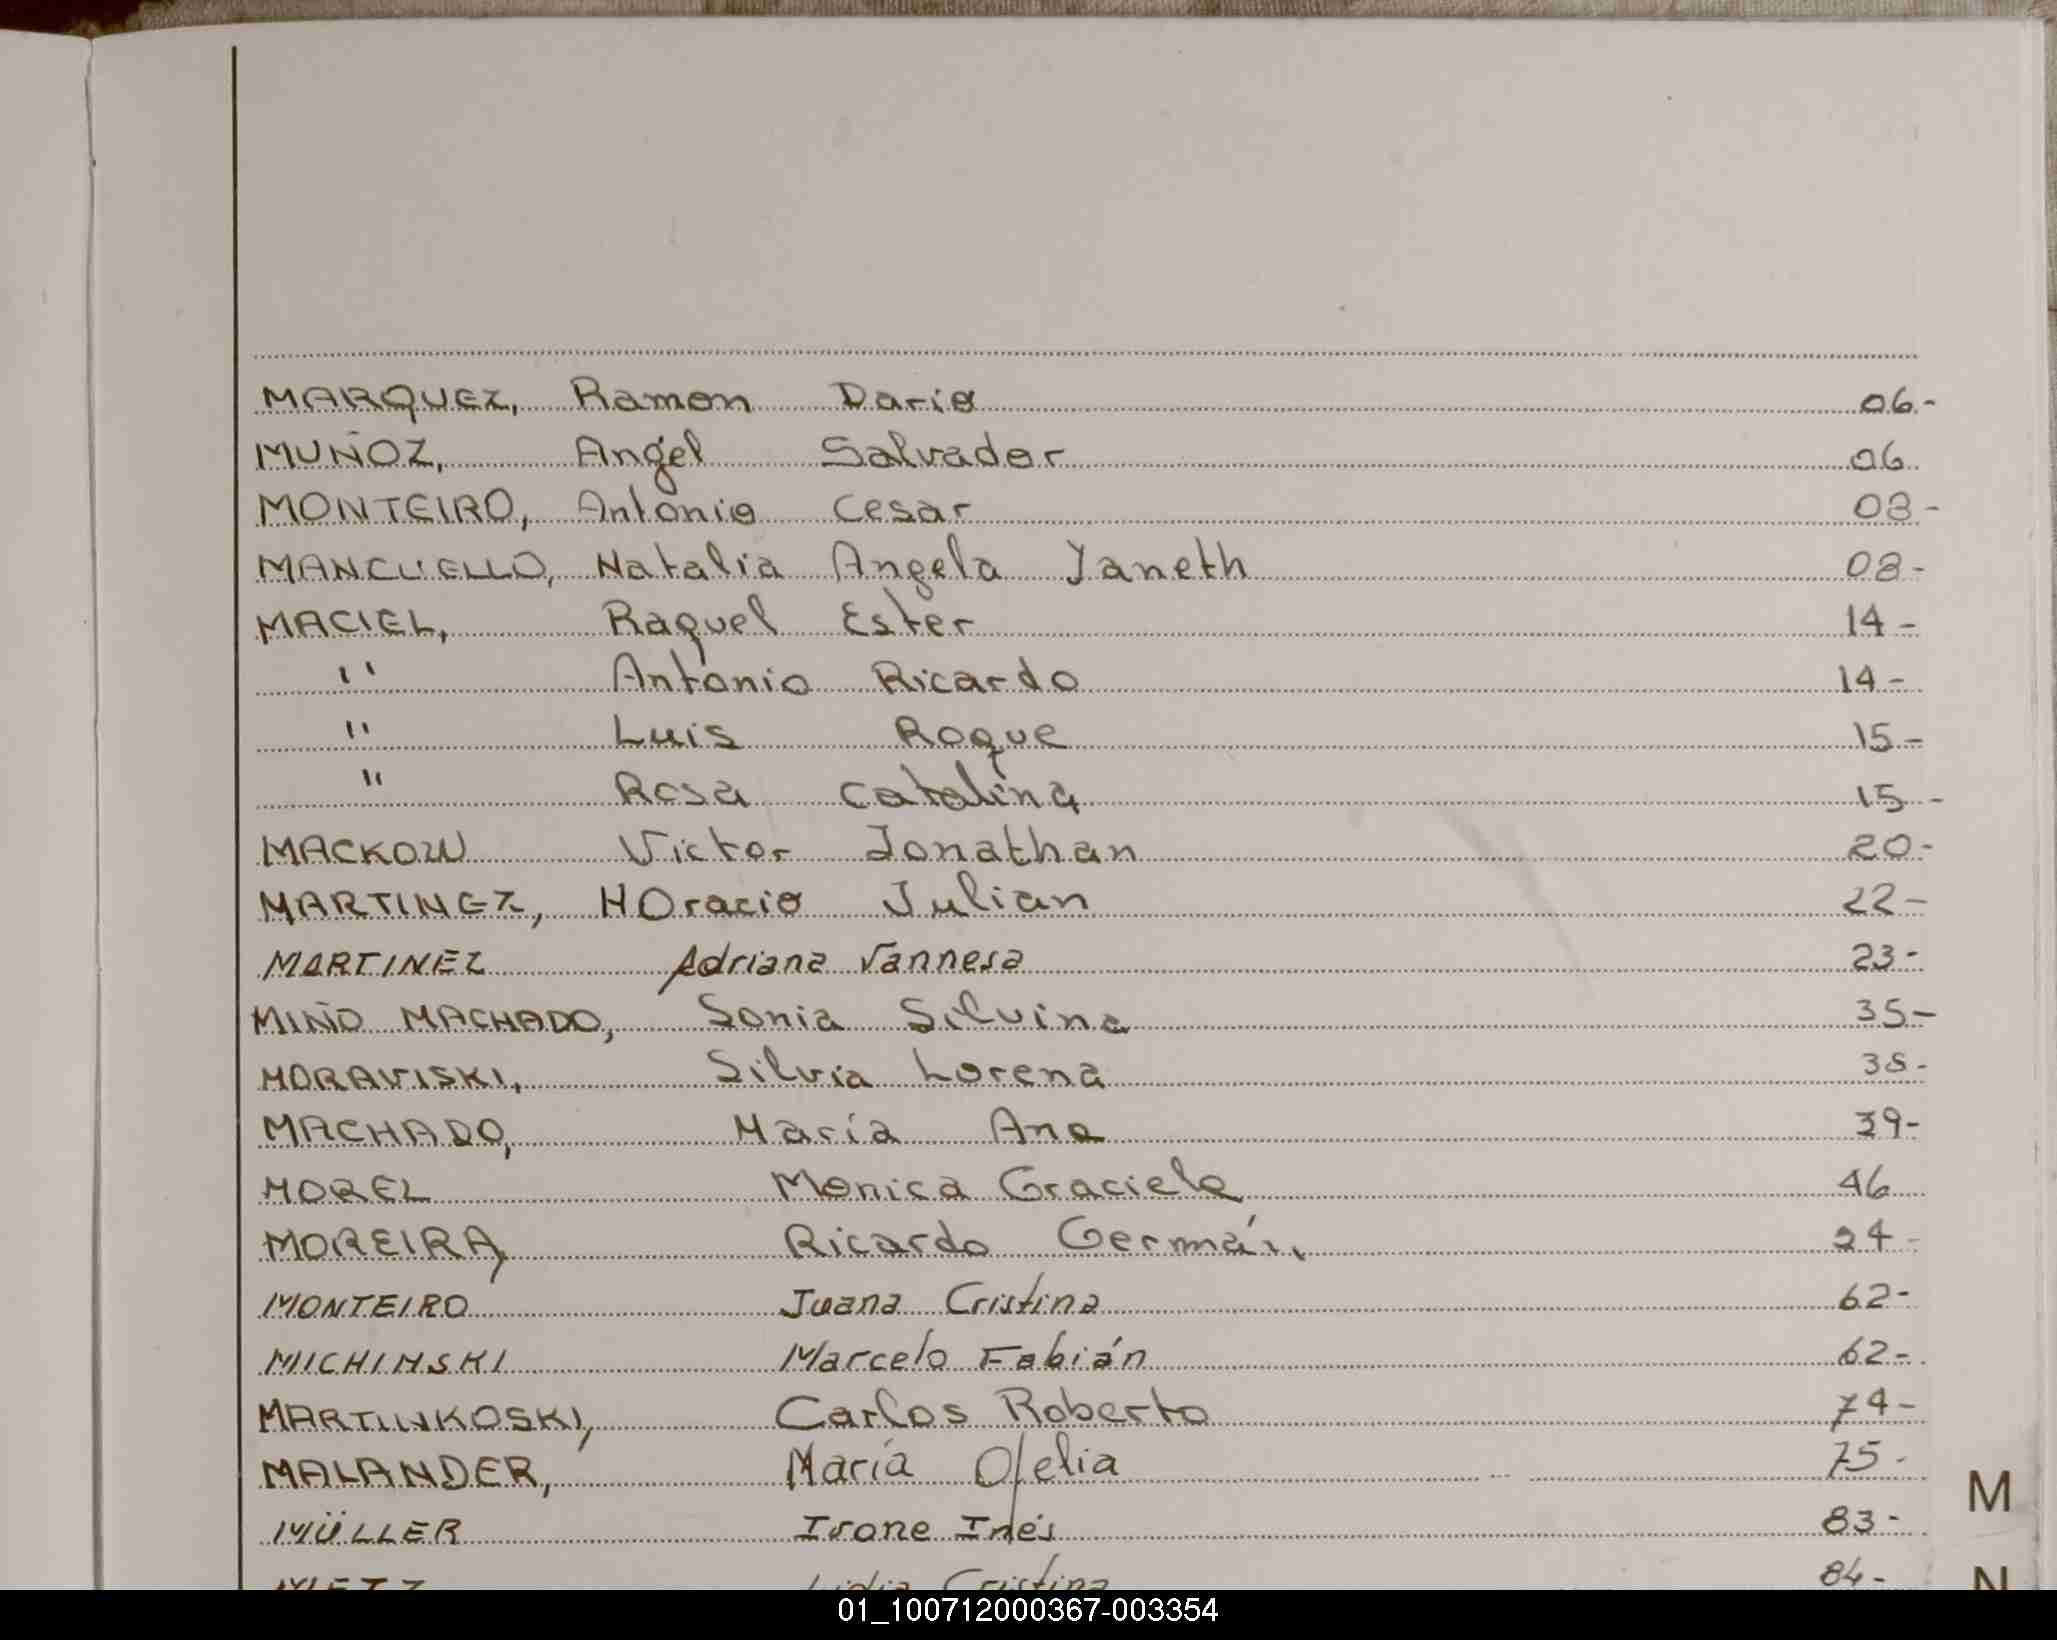 MARQUEZ, Ramon Dario 06-
MUÑOZ, Angel Salvador 06
MONTEIRO, Antonio Cesar 08-
MANCUELLO, Natalia Angela Yaneth 08-
MACIEL, Raquel Ester 14-
" Antonio Ricardo 14-
" Luis Roque 15-
" Rosa Catalina 15-
MACKOW Victor Jonathan 20-
MARTINEZ, HOracio Julian 22-
MARTINEZ Adriana Vannesa 23-
MIÑO MACHADO, Sonia Silvina 35-
MORAVISKI, Silvia Lorena 38-
MACHADO, María Ana 39-
MOREL Monica Graciela 46
MOREIRA, Ricardo Germán 24-
MONTEIRO Juana Cristina 62-
MICHINSKI Marcelo Fabián 62-
MARTINKOSKI, Carlos Roberto 74-
MALANDER, María Ofelia 75-
M
MÜLLER Ivone Inés 83-
METZ Lidia Cristina 84-
N
01_100712000367-003354